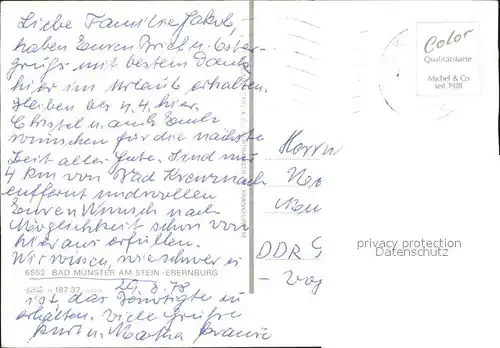 Liebe Familie Jakob,
haben Euren Brief u. Oster-
grüße mit bestem Dank
hier im Urlaub erhalten.
bleiben bis 4.4. hier.
Christel u. auch Euch
wünschen für die nächste
Zeit alles Gute. Sind nur
4 km von Bad Kreuznach
entfernt und wollen
Euren Wunsch nach
Möglichkeit schon von
hier aus erfüllen.
Wir wissen, wie schwer es
6552 BAD MÜNSTER AM STEIN-EBERNBURG
187.37 29.3.78
ist das Benötigte zu
erhalten. Viele Grüße
Kurt u. Martha
Color
Qualitätskarte
Michel & Co
seit 1928
Herrn
DDR
privacy protection
Datenschutz